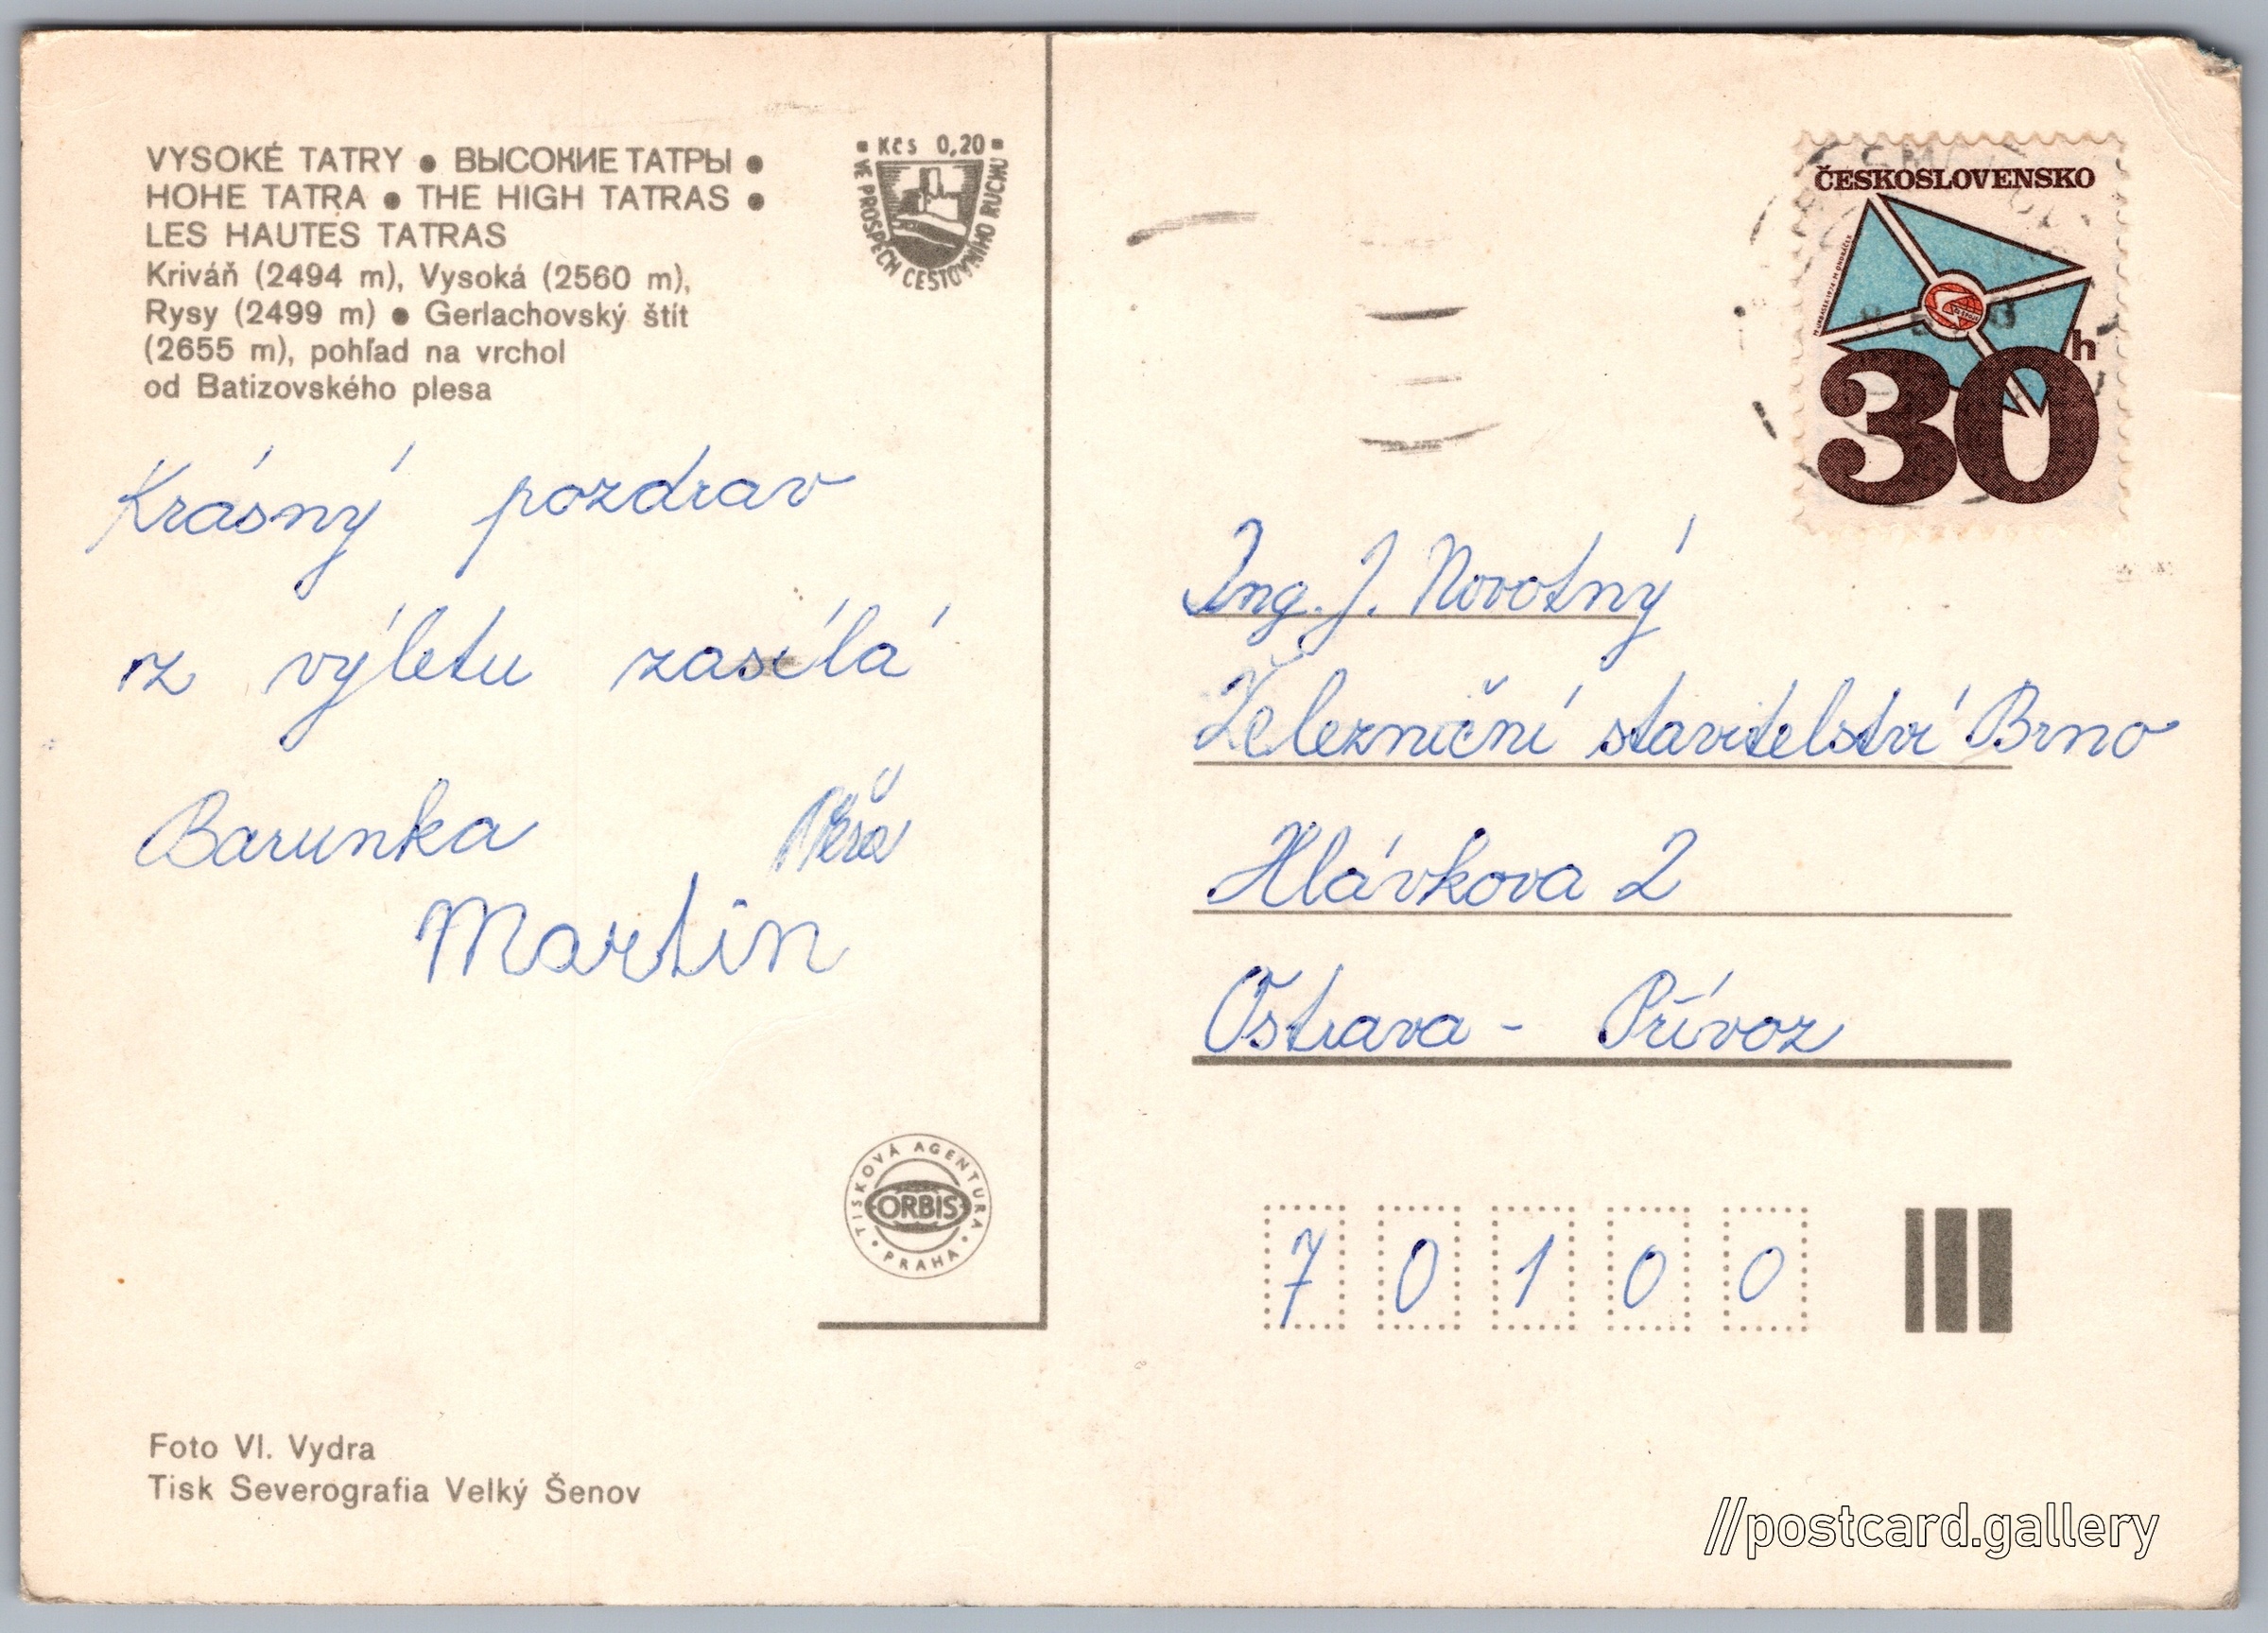 VYSOKÉ TATRY ● ВЫСОКИЕ ТАТРЫ ●
HOHE TATRA ● THE HIGH TATRAS ●
LES HAUTES TATRAS
Kriváň (2494 m), Vysoká (2560 m),
Rysy (2499 m) ● Gerlachovský štít
(2655 m), pohľad na vrchol
od Batizovského plesa
Kčs 0,20
VE PROSPĚCH CESTOVNÍHO RUCHU
Krásný pozdrav
z výletu zasílá
Barunka
Martin
TISKOVÁ AGENTURA
ORBIS
PRAHA
Foto Vl. Vydra
Tisk Severografia Velký Šenov
ČESKOSLOVENSKO
30h
Ing. J. Novotný
Železniční stavitelství Brno
Hlávkova 2
Ostrava - Přívoz
7 0 1 0 0
//postcard.gallery